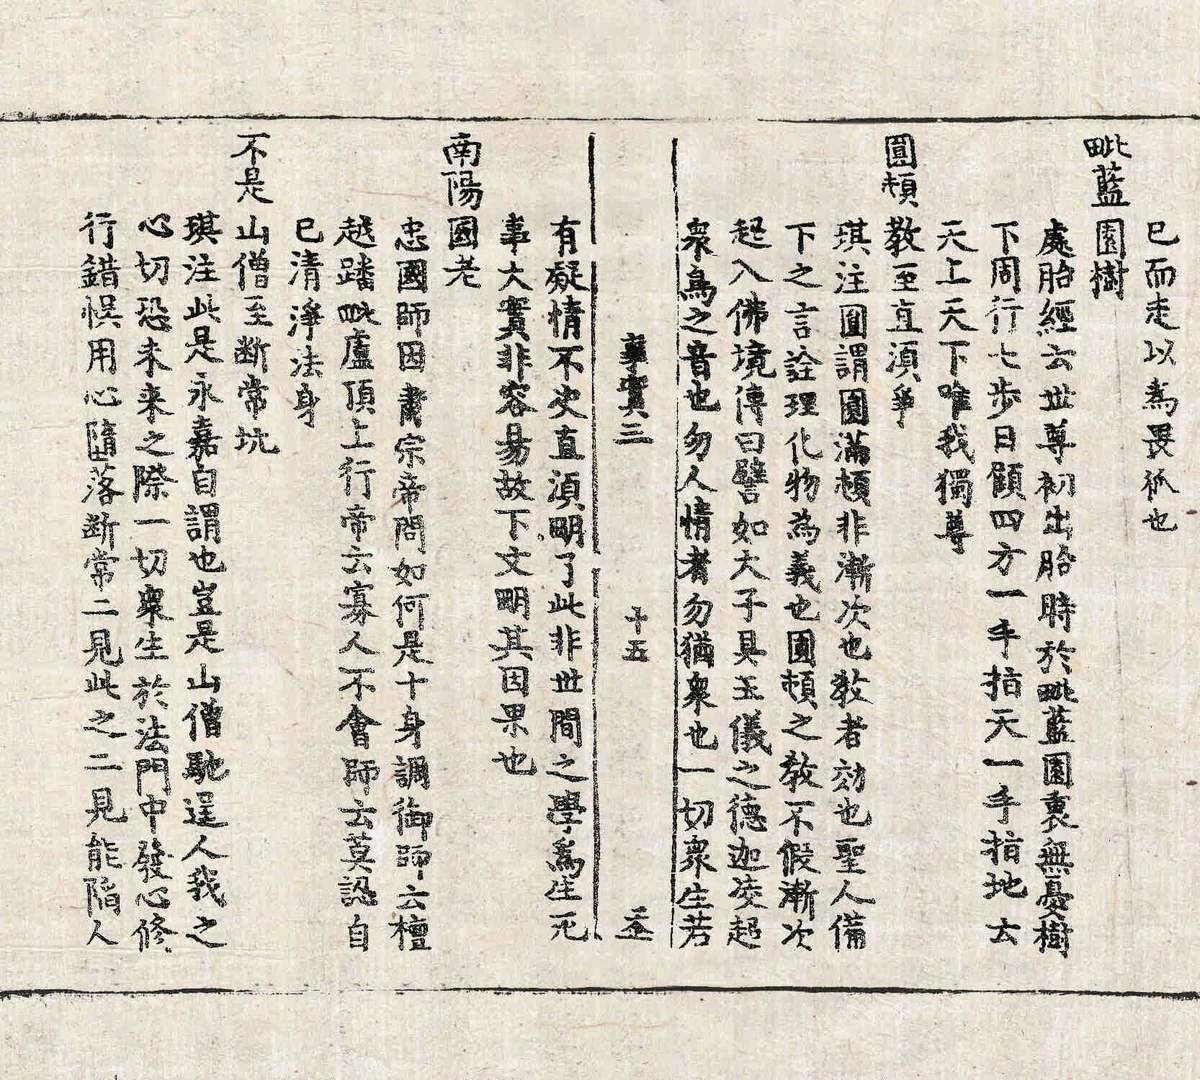 已而走以為畏狐也
毗藍園樹
處胎經云世尊初出胎時於毗藍園裏無憂樹
下周行七步目顧四方一手指天一手指地云
天上天下唯我獨尊
圓頓教至直湏爭
琪注圓謂圓滿頓非漸次也教者効也聖人備
下之言詮理化物為義也圓頓之教不假漸次
起入佛境傳曰譬如大子具玉儀之德迦凌超
衆鳥之音也勿人情者勿猶衆也一切衆生若
事實三 十五
有疑情不决直湏明了此非世間之學為生死
事大實非容易故下文明其因果也
南陽國老
忠國師因肅宗帝問如何是十身調御師云檀
越踏毗盧頂上行帝云寡人不會師云莫認自
已清淨法身
不是山僧至斷常坑
琪注此是永嘉自謂也豈是山僧馳逞人我之
心切恐未来之際一切衆生於法門中發心修
行錯悞用心墮落斷常二見此之二見能陷人